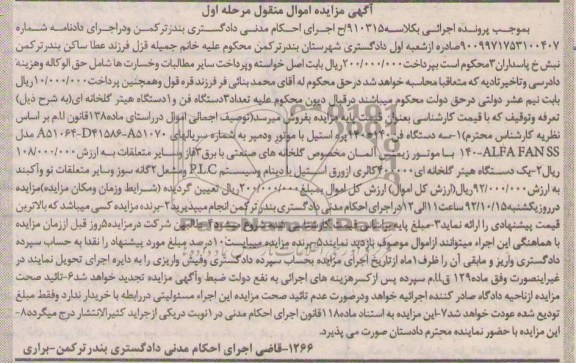 آگهی مزایده اموال منقول مرحله اول
بموجب پرونده اجرائی بکلاسه ۹۱۰۳۱۵/ج اجرای احکام مدنی دادگستری بندرترکمن ودراجرای دادنامه شماره
۹۰۰۹۹۷۱۷۵۳۱۰۰۴۰۷صادره ازشعبه اول دادگستری شهرستان بندرترکمن محکوم علیه خانم جمیله قزل فرزند عطا ساکن بندرترکمن
نبش خ پاسداران۳محکوم است بپرداخت۲۰۰/۰۰۰/۰۰۰ریال بابت اصل خواسته وپرداخت سایر مطالبات وخسارت ها شامل حق الوکاله وهزینه
دادرسی وتاخیر تادیه که متعاقبا محاسبه خواهد شد درحق محکوم له آقای محمد بنائی فر فرزند قره قول وهمچنین پرداخت۱۰/۰۰۰/۰۰۰ریال
بابت نیم عشر دولتی درحق دولت محکوم میباشد درقبال دیون محکوم علیه تعداد۳دستگاه فن و۱دستگاه هیتر گلخانه ای(به شرح ذیل)
تعرفه وتوقیف که با قیمت کارشناسی بعنوان قیمت پایه مزایده بفروش میرسد(توصیف اجمالی اموال درراستای ماده۱۳۸قانون ا.م بر اساس
نظریه کارشناس محترم)۱-سه دستگاه فن پره استیل با موتور ودمپر به شماره سریالهای A51070-D41586-A51064 مدل
ALFA FAN SS-140 با موتور زیمنس آلمان مخصوص گلخانه های صنعتی با برق۳فاز وسایر متعلقات به ارزش۱۰۸/۰۰۰/۰۰۰
ریال۲-یک دستگاه هیتر گلخانه ای کالری ازورق استیل با دینام وسیستم P.L.C ومشعل۲گانه سوز وسایر متعلقات نو وآکبند
به ارزش۹۲/۰۰۰/۰۰۰ریال(ارزش کل اموال) ارزش کل اموال بمبلغ۲۰۰/۰۰۰/۰۰۰ریال تعیین گردیده (شرایط وزمان ومکان مزایده)مزایده
درروزیکشنبه۹۲/۱۰/۱۵ساعت۱۱الی۱۲دراجرای احکام مدنی دادگستری بندرترکمن انجام میپذیرد۲-برنده مزایده کسی میباشد که بالاترین
قیمت پیشنهادی را ارائه نماید۳-مبلغ پایه طالبین شرکت درمزایده۵روز قبل اززمان مزایده
با هماهنگی این اجراء میتوانند ازاموال موصوف بازدید نمایند۵-برنده مزایده میبایست۱۰درصد مبلغ مورد پیشنهاد را نقدا به حساب سپرده
دادگستری واریز و مابقی آن را ظرف۱ماه ازتاریخ اجرای مزایده بحساب سپرده دادگستری وفیش واریزی را به دایره اجرای تحویل نمایند در
غیراینصورت وفق ماده۱۲۹ ق.ا.م سپرده پس ازکسرهزینه های اجرائی به نفع دولت ضبط وآگهی مزایده تجدید خواهد شد۶-تائید صحت
مزایده ازناحیه دادگاه صادر کننده اجرائیه خواهد ودرصورت عدم تائید صحت مزایده این اجراء مسئولیتی دررابطه با خریدار ندارد وفقط مبلغ
تودیع شده عودت خواهد شد۷-این مزایده به استناد ماده۱۱۸قانون اجرای احکام مدنی در۱نوبت دریکی ازجراید کثیرالانتشار درج میگردد۸-
این مزایده با حضور نماینده محترم دادستان صورت می پذیرد.
۱۳۶۶-قاضی اجرای احکام مدنی دادگستری بندرترکمن-براری